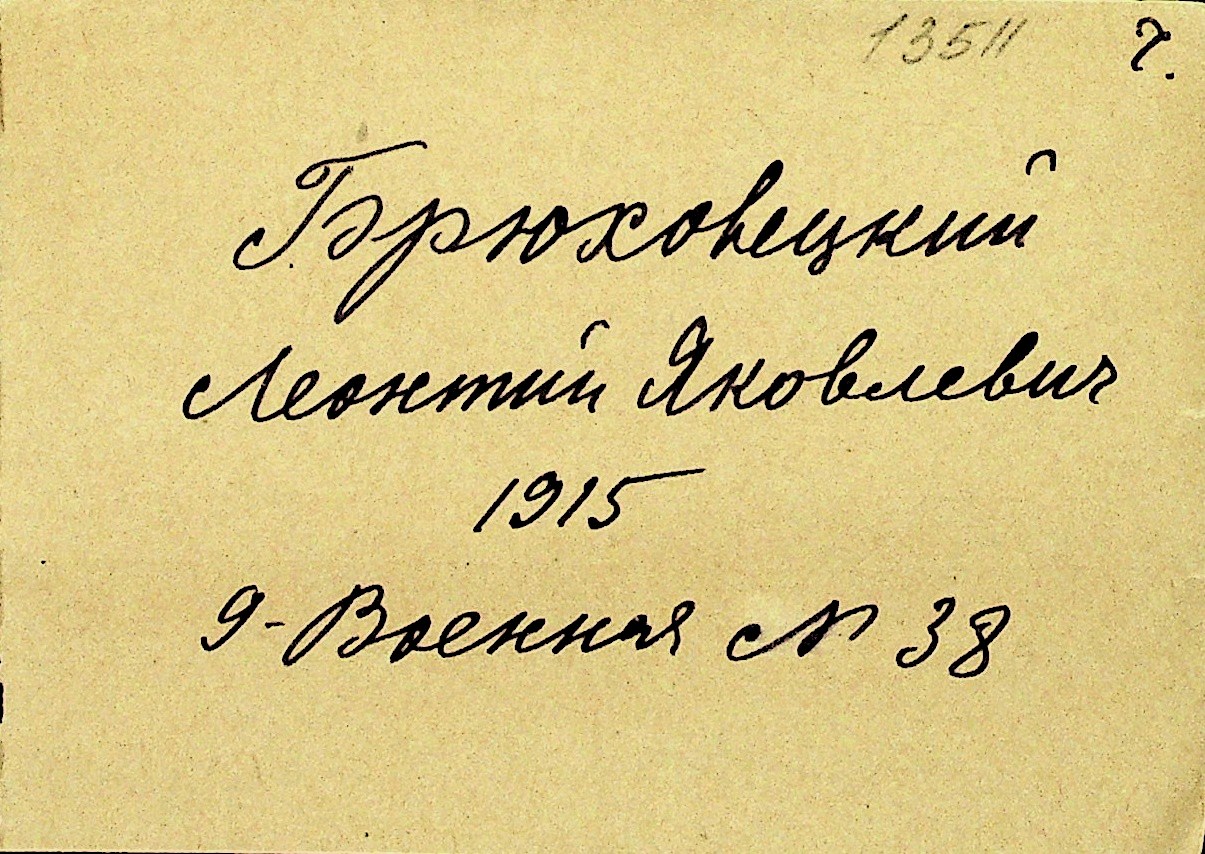 13511 7.
Брюховецкий
Леонтий Яковлевич
1915
9-Военная № 38